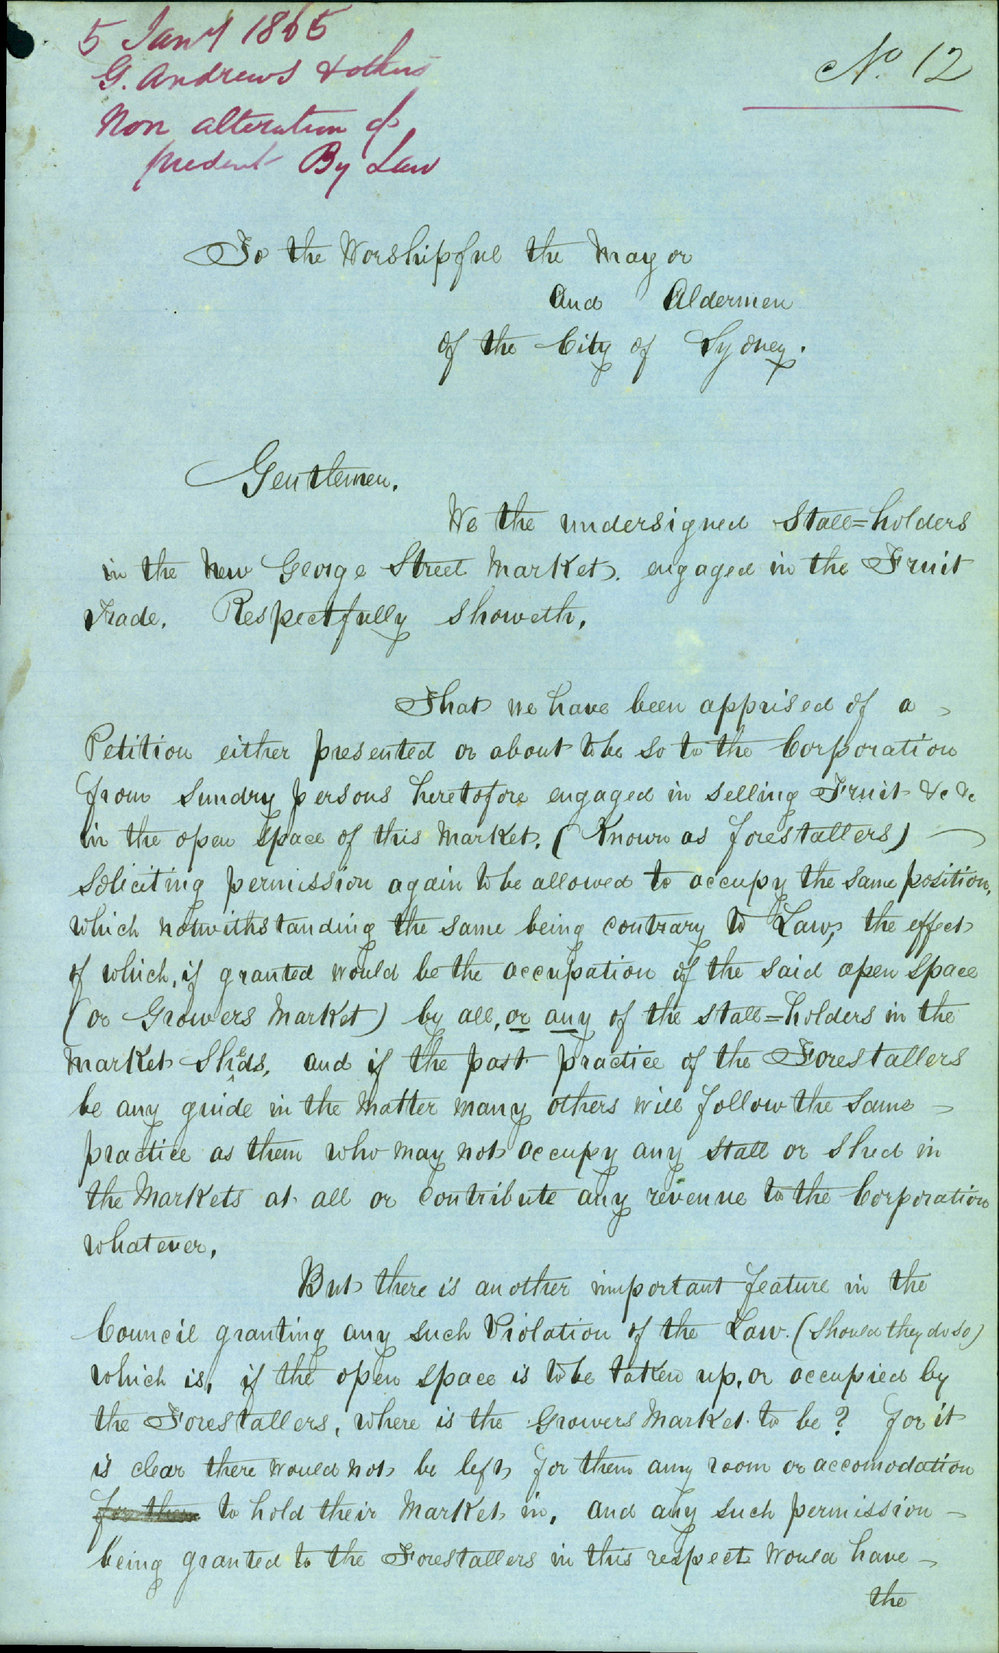 5 Jany 1865
G. Andrews & others
Non alteration of
present By Law
No. 12
To the Worshipful the Mayor
And Aldermen
of the City of Sydney.
Gentlemen.
We the undersigned Stall=holders
in the New George Street Market. engaged in the Fruit
Trade. Respectfully Showeth.
That we have been apprised of a
Petition either presented or about to be so to the Corporation
from Sundry persons heretofore engaged in selling Fruit &c &c
in the open space of this Market. (Known as forestallers)
Soliciting permission again to be allowed to occupy the same position,
which notwithstanding the same being contrary to Law, the effect
of which, if granted would be the occupation of the said open space
(or Growers Market) by all, or any of the stall=holders in the
Market Sheds, and if the past practice of the Forestallers
be any guide in the Matter many others will follow the same
practice as them who may not occupy any stall or Shed in
the Markets at all or Contribute any revenue to the Corporation
whatever.
But there is another important feature in the
Council granting any such Violation of the Law. (should they do so)
which is, if the open space is to be taken up, or occupied by
the Forestallers, where is the Growers Market to be? for it
is clear there would not be left for them any room or accomodation
for them to hold their Market in, and any such permission
being granted to the Forestallers in this respect would have
the